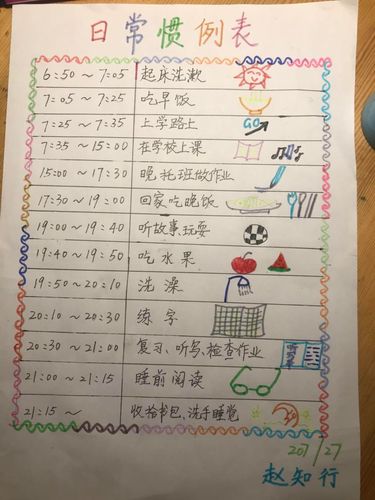 日常惯例表
6:50～7:05 起床洗漱
7:05～7:25 吃早饭
7:25～7:35 上学路上 GO
7:35～15:00 在学校上课
15:00～17:30 晚托班做作业
17:30～19:00 回家吃晚饭
19:00～19:40 听故事、玩耍
19:40～19:50 吃水果
19:50～20:10 洗澡
20:10～20:30 练字
20:30～21:00 复习、听写、检查作业
21:00～21:15 睡前阅读
21:15～ 收拾书包、洗手睡觉
赵知行